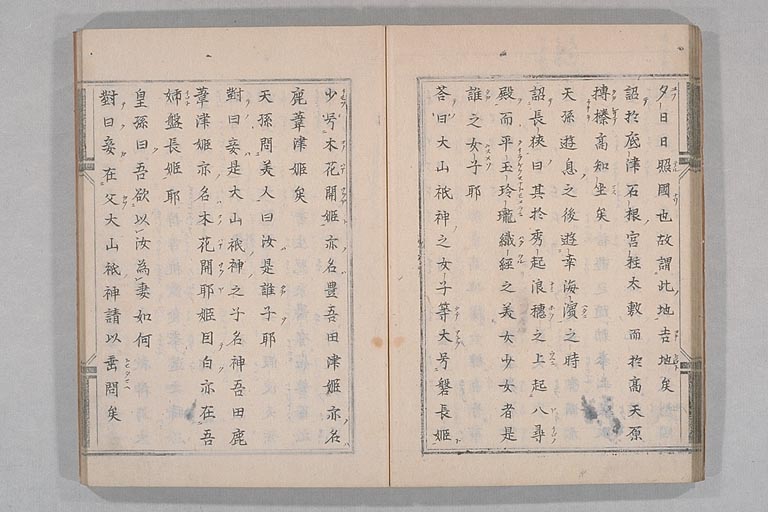 夕日日照國也故謂此地吉地矣
詔於底津石根宮柱太敷而於高天原
搏樔高知坐矣
天孫遊息之後遊幸海濱之時
詔長狹曰其於秀起浪穗之上起八尋
殿而手玉玲瓏織經之美女少女者是
誰之女子耶
荅曰大山祇神之女子等大号磐長姬
少号木花開姬亦名豊吾田津姬亦名
鹿葦津姬矣
天孫問美人曰汝是誰子耶
對曰妾是大山祇神之子名神吾田鹿
葦津姬亦名木花開耶姬因白亦在吾
姉盤長姬耶
皇孫曰吾欲以汝為妻如何
對曰妾在父大山祇神請以垂問矣